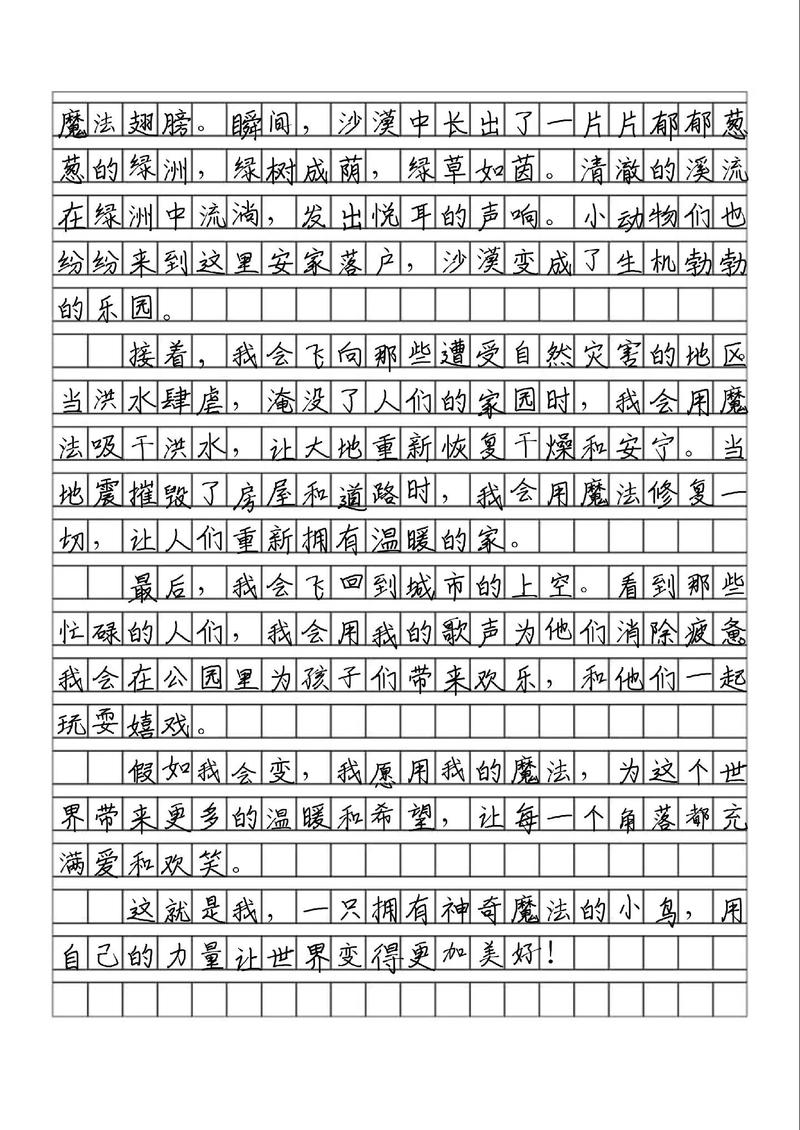 魔法翅膀。瞬间，沙漠中长出了一片片郁郁葱
葱的绿洲，绿树成荫，绿草如茵。清澈的溪流
在绿洲中流淌，发出悦耳的声响。小动物们也
纷纷来到这里安家落户，沙漠变成了生机勃勃
的乐园。
接着，我会飞向那些遭受自然灾害的地区。
当洪水肆虐，淹没了人们的家园时，我会用魔
法吸干洪水，让大地重新恢复干燥和安宁。当
地震摧毁了房屋和道路时，我会用魔法修复一
切，让人们重新拥有温暖的家。
最后，我会飞回到城市的上空。看到那些
忙碌的人们，我会用我的歌声为他们消除疲惫。
我会在公园里为孩子们带来欢乐，和他们一起
玩耍嬉戏。
假如我会变，我愿用我的魔法，为这个世
界带来更多的温暖和希望，让每一个角落都充
满爱和欢笑。
这就是我，一只拥有神奇魔法的小鸟，用
自己的力量让世界变得更加美好！